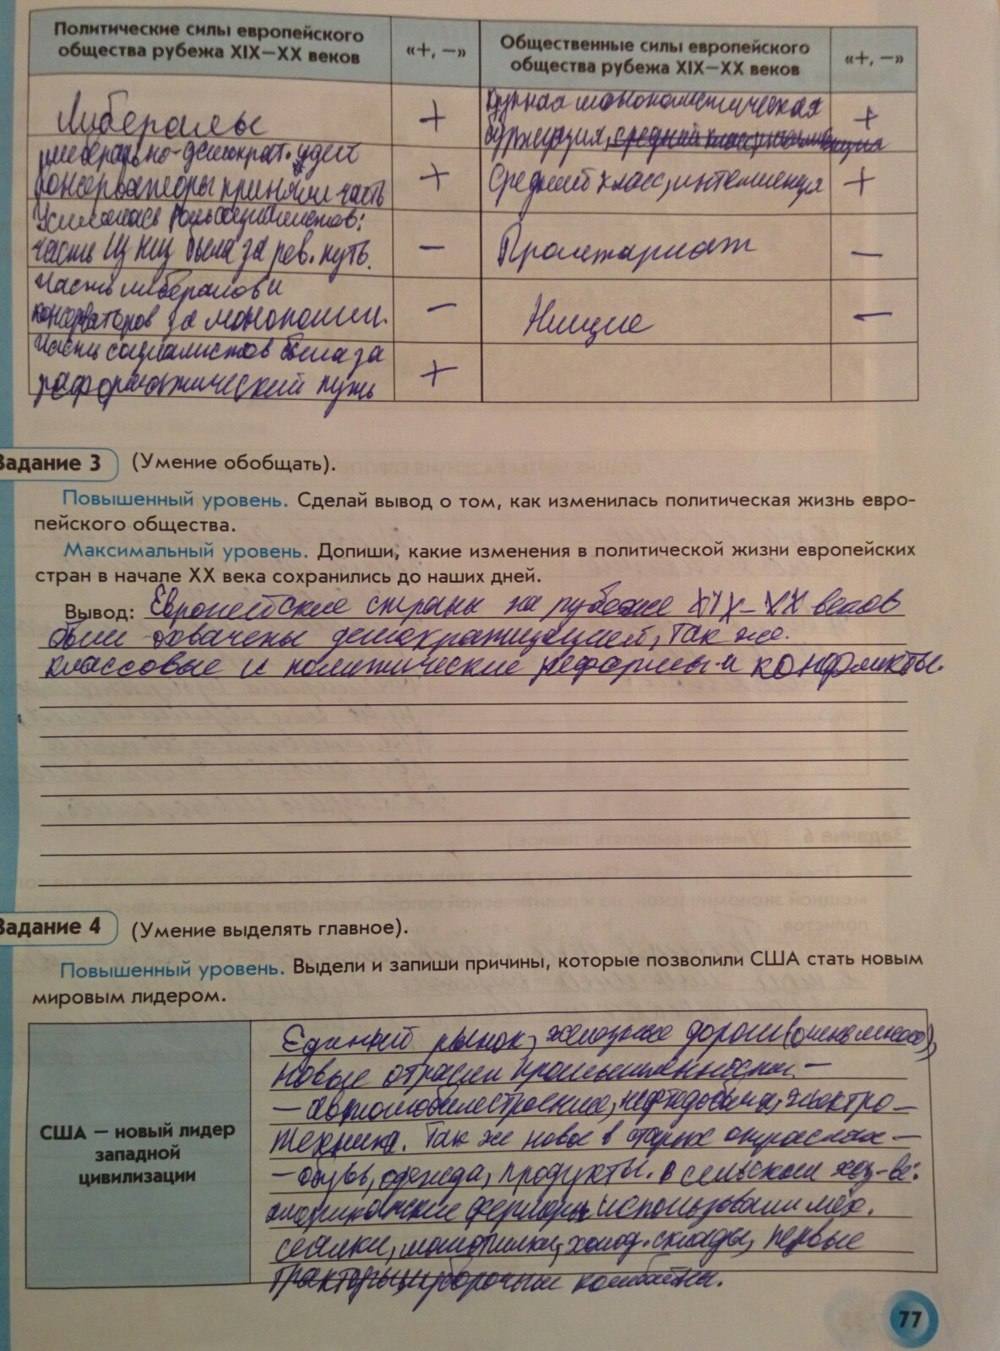 Политические силы европейского
общества рубежа XIX—XX веков
«+, —»
Общественные силы европейского
общества рубежа XIX—XX веков
«+, —»
Либералы
+
Крупная монополистическая
буржуазия, средний класс,
+
либерально-демократ. идеи
консерваторы приняли часть
+
Средний класс, интелигенция
+
Усилилась роль социалистов:
часть из них была за рев. путь.
—
Пролетариат
—
Часть либералов и
консерваторов за монополии.
—
Нищие
—
Часть социалистов была за
реформистический путь
+
Задание 3 (Умение обобщать).
Повышенный уровень. Сделай вывод о том, как изменилась политическая жизнь евро-
пейского общества.
Максимальный уровень. Допиши, какие изменения в политической жизни европейских
стран в начале XX века сохранились до наших дней.
Вывод: Европейские страны на рубеже XIX-XX веков
были охвачены демократизацией, так же.
классовые и политические реформы и конфликты.
Задание 4 (Умение выделять главное).
Повышенный уровень. Выдели и запиши причины, которые позволили США стать новым
мировым лидером.
США — новый лидер
западной
цивилизации
Единый рынок, железные дороги (очень много),
новые отрасли промышленности —
— автомобилестроение, нефтедобыча, электро-
техника. Так же новое в старых отраслях —
— обувь, одежда, продукты. в сельском хоз-ве:
американские фермеры использовали мех.
сеялки, молотилки, холод. склады, первые
тракторы, уборочные комбайны.
77